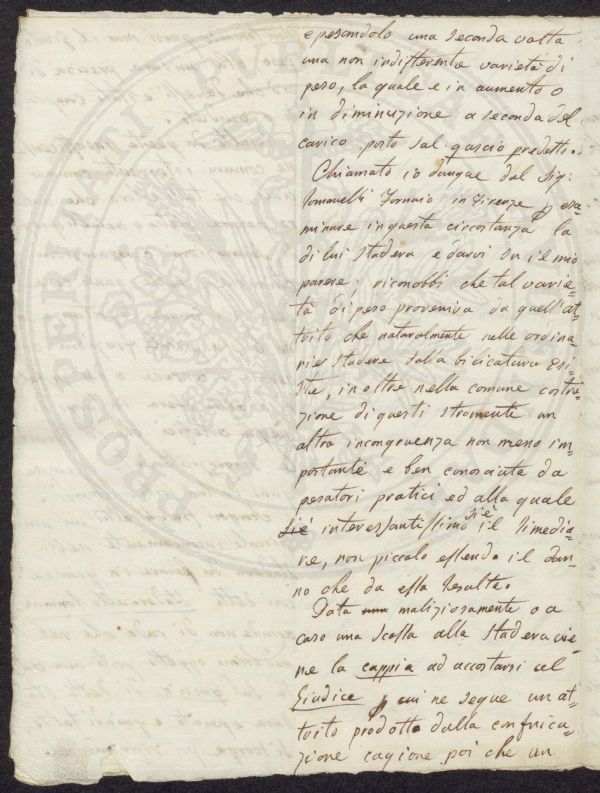 e pesandolo una seconda volta
una non indifferente varietà di
peso, la quale e in aumento o
in diminuzione a seconda del
carico posto sul guscio predetto.
Chiamato io dunque dal Sig:
Tomanelli Fornaio in Firenze p esa=
minare in questa circostanza la
di lui Stadera e darvi su il mio
parere; riconobbi che tal varie=
tà di peso proveniva da quell'at=
trito che naturalmente nelle ordina=
rie Stadere sulla bilicatura esi=
ste, inoltre nella comune costru=
zione di questi stromenti un
altra incongruenza non meno im=
portante e ben conosciuta da
pesatori pratici ed alla quale
si è interessantissimo si è il rimedia=
re, non piccolo essendo il dan=
no che da essa resulta.
Data una maliziosamente o a
caso una scossa alla Stadera vie=
ne la cappia ad accostarsi al
Giudice p cui ne segue un at=
trito prodotto dalla confrica=
zione cagione poi che un
PROSPERITATI PUBLICAE